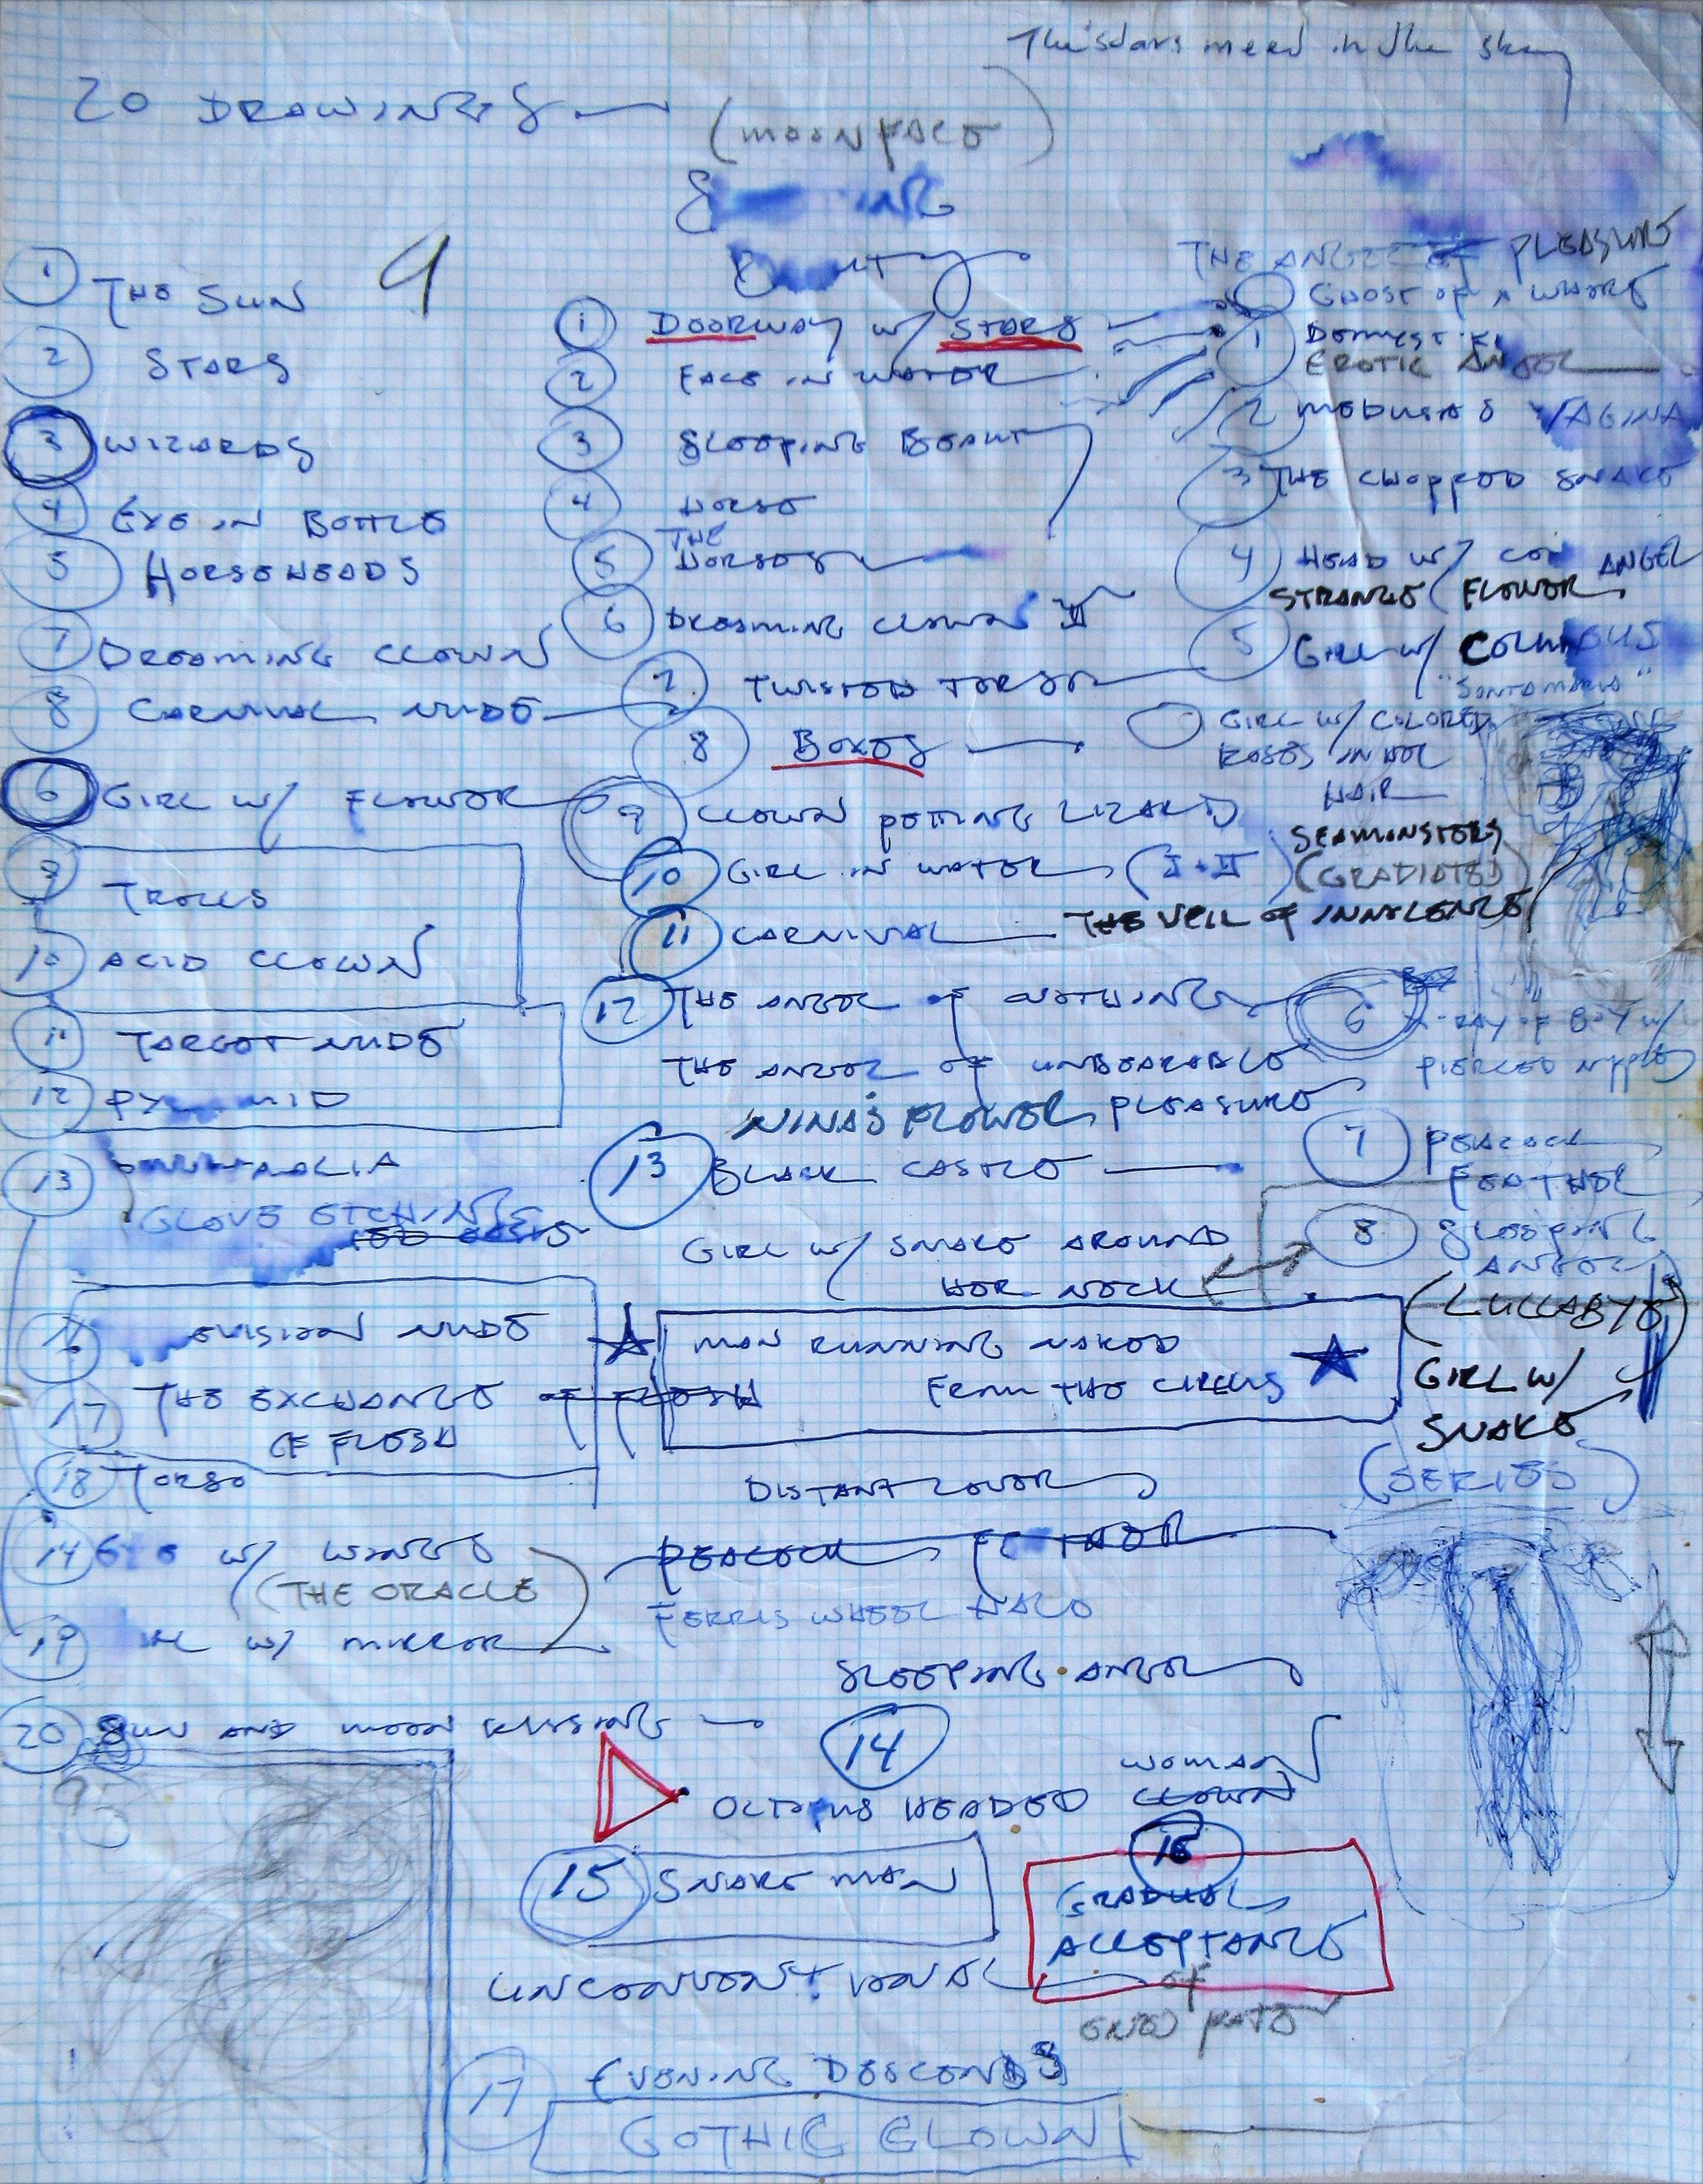 in the sky
20 DRAWINGS
(MOONFACE)
9
① THE SUN
② STARS
③ WIZARDS
④ EYE IN BOTTLE
⑤ HORSEHEADS
⑦ DREAMING CLOWN
⑧ CARNIVAL NUDE
⑥ GIRL W/ FLOWER
⑨ TROLLS
⑩ ACID CLOWN
⑪ TARGET NUDE
⑫ PYRAMID
⑬
GLOVE ETCHING
NUDE
⑰ THE EXCHANGE OF FLESH
OF FLESH
⑱ TORSO
⑭ EYE W/ WINGS
(THE ORACLE)
⑲ W/ MIRROR
⑳ SUN AND MOON KISSING
① DOORWAY W/ STARS
② FACE IN WATER
③ SLEEPING BEAUTY
④ HORSE
THE
⑤ HORSES
⑥ DREAMING CLOWN II
7. TWISTED TORSO
⑧ BOXES
⑨ CLOWN PETTING LIZARD
⑩ GIRL IN WATER (I + II)
⑪ CARNIVAL
⑫ THE ANGEL OF NOTHING
THE ANGEL OF UNBEARABLE
PLEASURE
NINA'S FLOWER
⑬ BLACK CASTLE
GIRL W/ SNAKE AROUND
HER NECK
MAN RUNNING NAKED
FROM THE CIRCUS
DISTANT LOVER
PEACOCK FEATHER
FERRIS WHEEL HALO
SLEEPING ANGEL
⑭
WOMAN
OCTOPUS HEADED CLOWN
⑮ SNAKE MAN
⑯
GRADUAL
ACCEPTANCE
OF
UNCONVENTIONAL
⑰ EVENING DESCENDS
GOTHIC CLOWN
THE ANGEL OF PLEASURE
GHOST OF A WHORE
①
EROTIC ANGEL
2 MEDUSA'S VAGINA
3 THE CHOPPED SNAKE
④ HEAD W/ ANGEL
STRANGE FLOWER
⑤ GIRL W/ COLUMBUS
"SANTA MARIA"
GIRL W/ COLORED
ROSES IN HER
HAIR
SEAMONSTERS
(GRADIATED)
THE VEIL OF INNOCENCE
⑥ X-RAY OF BOY W/
PIERCED NIPPLE
⑦ PEACOCK
FEATHER
⑧ SLEEPING
ANGEL
(LULLABYE)
GIRL W/
SNAKE
(SERIES)